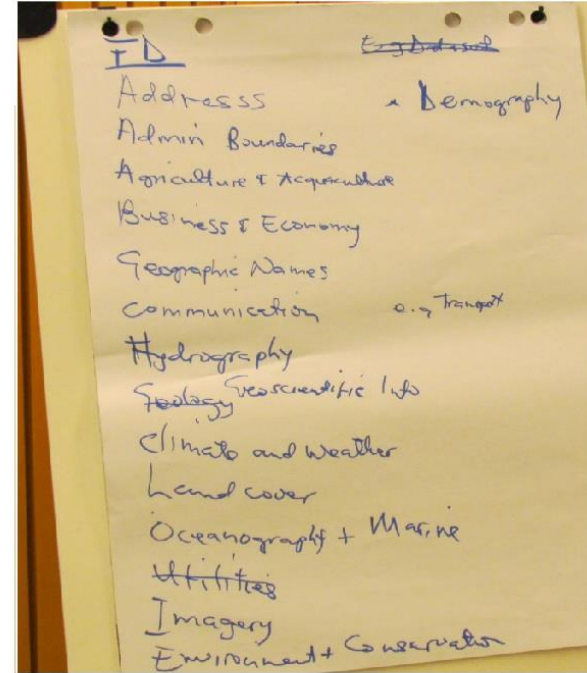 FD
Addresss
• Demography
Admin Boundaries
Agriculture & Acquaculture
Business & Economy
Geographic Names
Communication e.g Transport
Hydrography
Geology Geoscientific Info
Climate and Weather
Land cover
Oceanography + Marine
Utilities
Imagery
Environment + Conservation